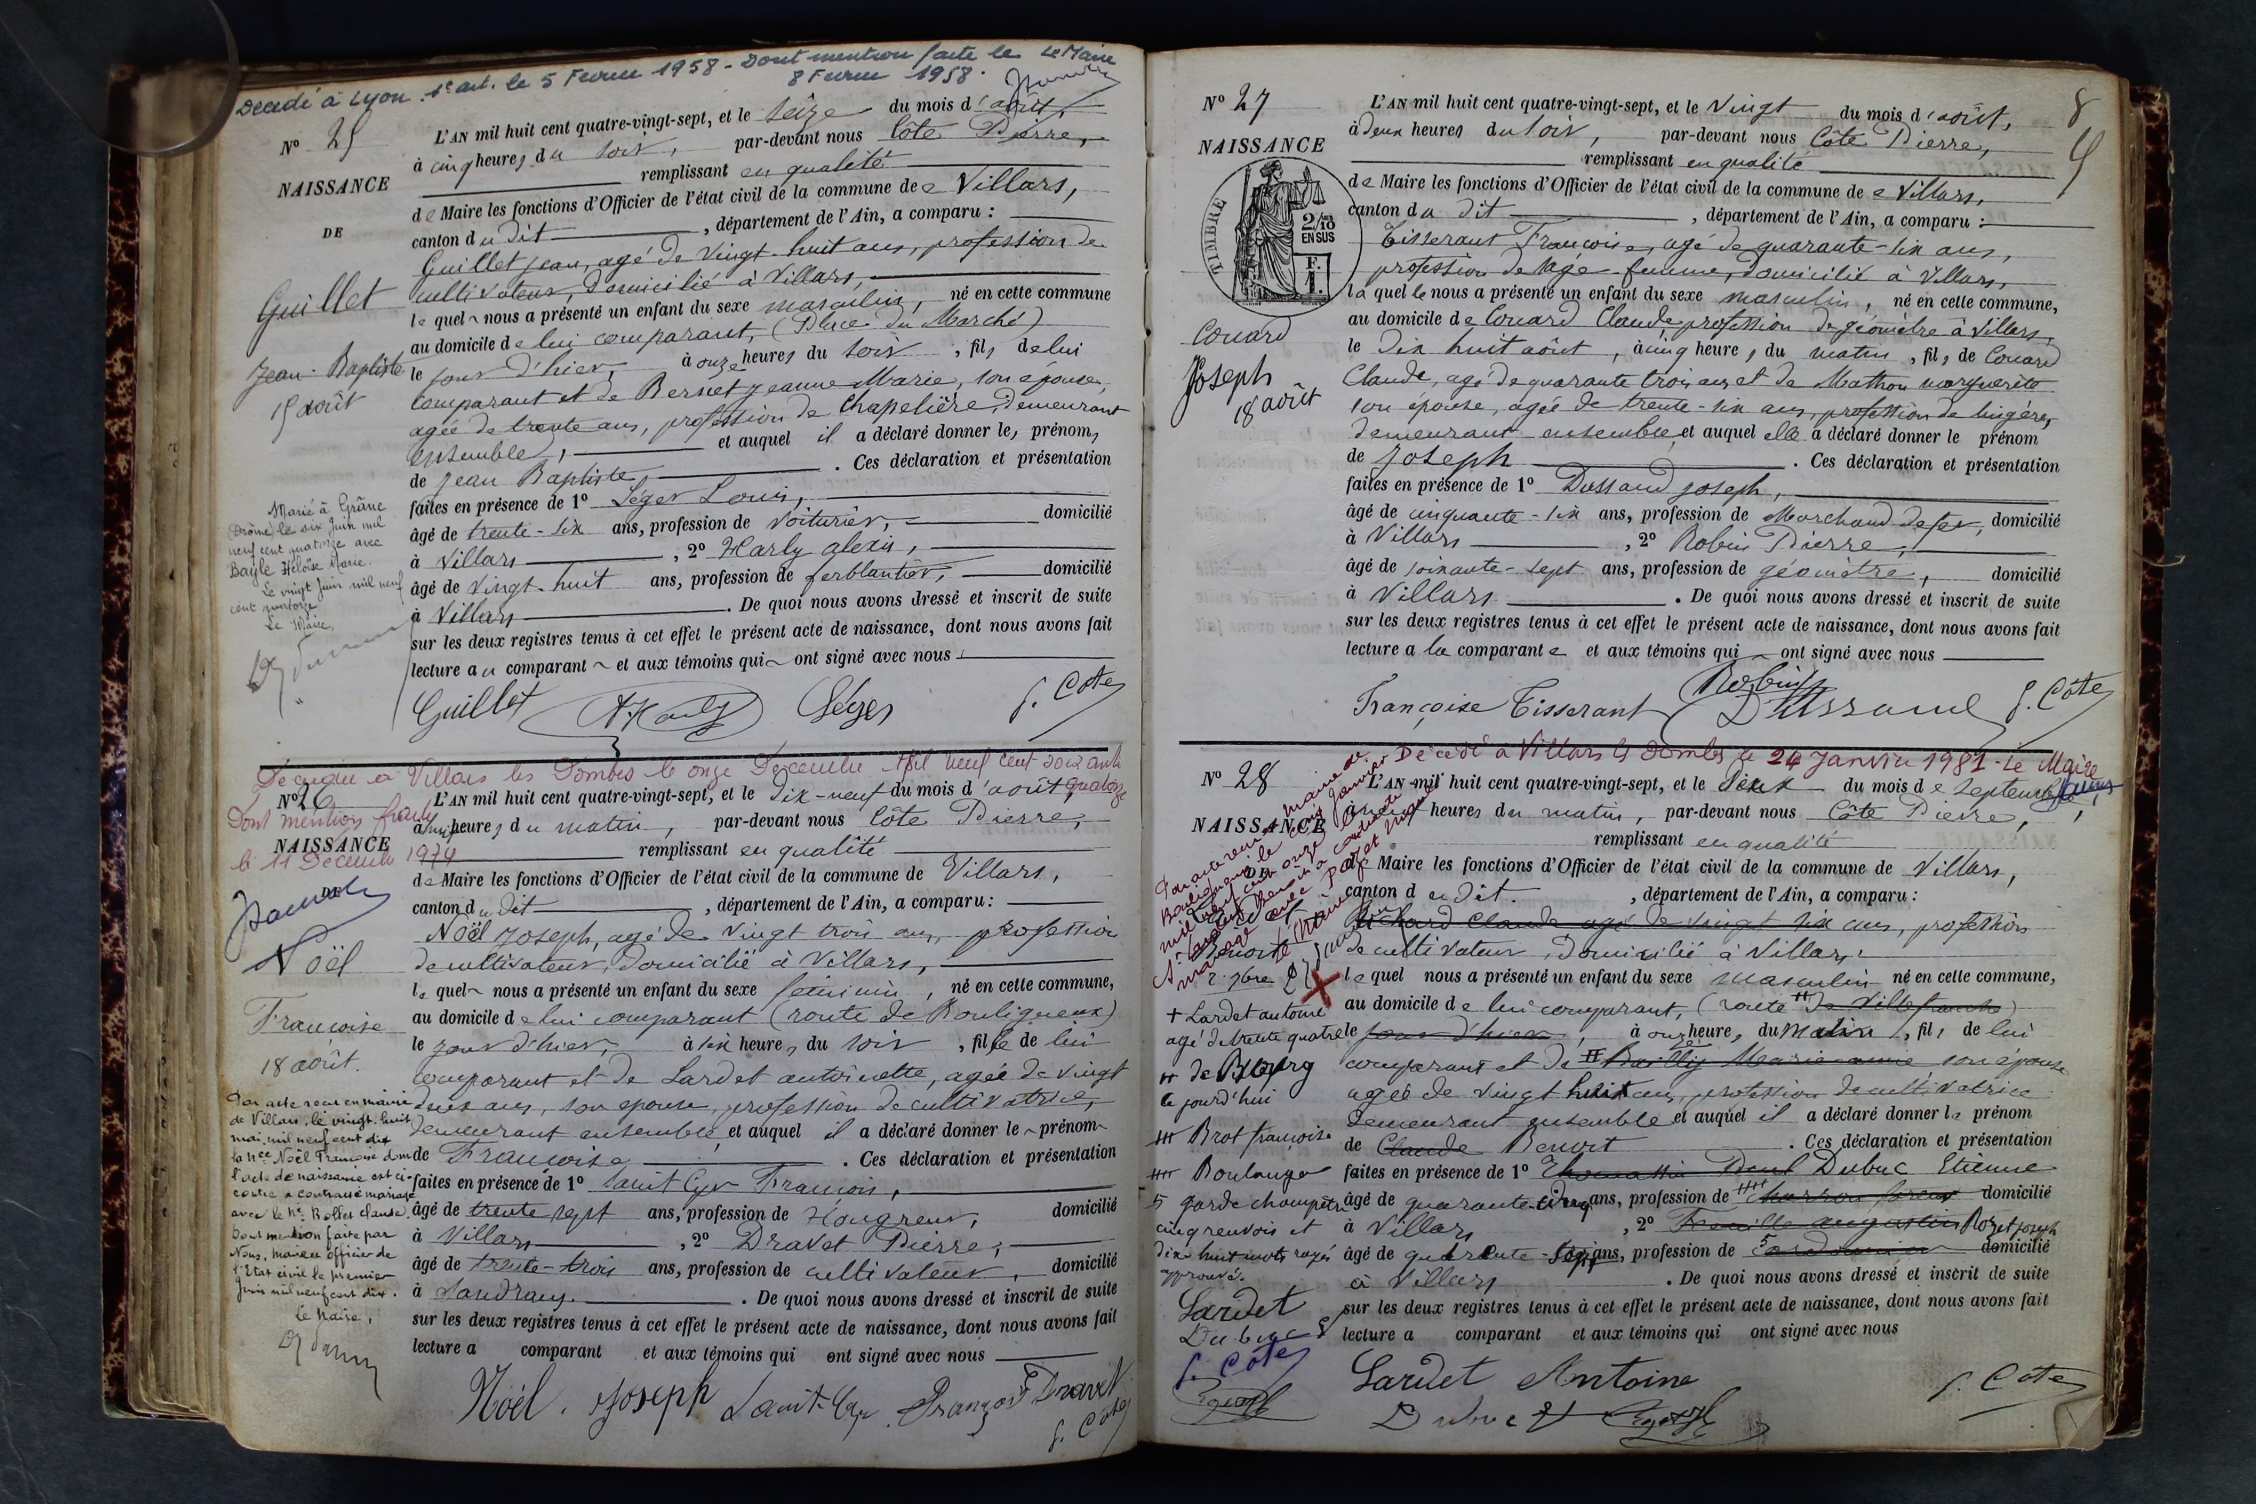 Décédé à Lyon 1e art. le 5 Fevrier 1958 - Dont mention faite le Le Maire
8 Fevrier 1958.
N° 25
NAISSANCE
DE
Guillet
Jean-Baptiste
15 août
Marié à Grâne
(Drôme) le six Juin mil
neuf cent quatorze avec
Bayle Héloïse Marie.
Le vingt Juin mil neuf
cent quatorze
Le Maire,
L'AN mil huit cent quatre-vingt-sept, et le seize du mois d'août,
à cinq heures du soir, par-devant nous Côte Pierre,
remplissant en qualité
de Maire les fonctions d'Officier de l'état civil de la commune de Villars,
canton du dit, département de l'Ain, a comparu :
Guillet Jean, agé de vingt-huit ans, profession de
cultivateur, domicilié à Villars,
lequel nous a présenté un enfant du sexe masculin, né en cette commune
au domicile de lui comparant, (Place du Marché)
le jour d'hier, à onze heures du soir, fils de lui
comparant et de Bernet Jeanne Marie, son épouse,
agée de trente ans, profession de Chapelière, demeurant
ensemble, et auquel il a déclaré donner les prénoms
de Jean Baptiste. Ces déclaration et présentation
faites en présence de 1° Léger Louis,
âgé de trente-six ans, profession de voiturier, domicilié
à Villars, 2° Harly alexis,
âgé de vingt-huit ans, profession de ferblantier, domicilié
à Villars. De quoi nous avons dressé et inscrit de suite
sur les deux registres tenus à cet effet le présent acte de naissance, dont nous avons fait
lecture au comparant et aux témoins qui ont signé avec nous
Guillet A. Harly Léger P. Côte
Décédée à Villars les Dombes le onze Décembre Mil neuf cent soixante
quatorze
Dont mention faite
le 11 Décembre 1974
N° 26
NAISSANCE
DE
Noël
Françoise
18 août.
Par acte reçu en mairie
de Villars, le vingt-huit
mai, mil neuf cent dix
la née Noël Françoise dont
l'acte de naissance est ci-
contre a contracté mariage
avec le Nt Rollet Claude.
Dont mention faite par
Nous, maire officier de
l'Etat civil le premier
Juin mil neuf cent dix.
Le Maire,
L'AN mil huit cent quatre-vingt-sept, et le dix-neuf du mois d'août,
à huit heures du matin, par-devant nous Côte Pierre,
remplissant en qualité
de Maire les fonctions d'Officier de l'état civil de la commune de Villars,
canton du dit, département de l'Ain, a comparu :
Noël Joseph, agé de vingt trois ans, profession
de cultivateur, domicilié à Villars,
lequel nous a présenté un enfant du sexe féminin, né en cette commune,
au domicile de lui comparant (route de Bouligneux)
le jour d'hier, à six heures du soir, fille de lui
comparant et de Lardet antoinette, agée de vingt
deux ans, son épouse, profession de cultivatrice,
demeurant ensemble, et auquel il a déclaré donner le prénom
de Françoise. Ces déclaration et présentation
faites en présence de 1° Saint Cyr François,
âgé de trente sept ans, profession de Hongreur, domicilié
à Villars, 2° Dravet Pierre,
âgé de trente-trois ans, profession de cultivateur, domicilié
à Sandrans. De quoi nous avons dressé et inscrit de suite
sur les deux registres tenus à cet effet le présent acte de naissance, dont nous avons fait
lecture a comparant et aux témoins qui ont signé avec nous
Noël Joseph Saint-Cyr François Dravet
P. Côte
8
N° 27
NAISSANCE
TIMBRE
2/10 EN SUS
F. 1.
Couard
Joseph
18 août
L'AN mil huit cent quatre-vingt-sept, et le vingt du mois d'août,
à deux heures du soir, par-devant nous Côte Pierre,
remplissant en qualité
de Maire les fonctions d'Officier de l'état civil de la commune de Villars,
canton du dit, département de l'Ain, a comparu :
Tisserant Françoise, agé de quarante-six ans,
profession de sage-femme, domicilié à Villars,
laquelle nous a présenté un enfant du sexe masculin, né en cette commune,
au domicile de Couard Claude, profession de géomètre à Villars,
le dix huit août, à cinq heures du matin, fils de Couard
Claude, agé de quarante trois ans et de Mathon marguerite
son épouse, agée de trente-six ans, profession de lingère,
demeurant ensemble, et auquel elle a déclaré donner le prénom
de Joseph. Ces déclaration et présentation
faites en présence de 1° Dussaud Joseph,
âgé de cinquante-six ans, profession de Marchand de fer, domicilié
à Villars, 2° Robin Pierre,
âgé de soixante-sept ans, profession de géomètre, domicilié
à Villars. De quoi nous avons dressé et inscrit de suite
sur les deux registres tenus à cet effet le présent acte de naissance, dont nous avons fait
lecture a la comparante et aux témoins qui ont signé avec nous
Robin
Françoise Tisserant Dussaud P. Côte
Décédé à Villars les Dombes le 24 Janvier 1981. Le Maire
N° 28
NAISSANCE
Benoit
2 7bre
+ Lardet antoine
agé de trente quatre
++ de Bourg
ce jourd'hui
+++ Brot françoise
++++ Boulanger
5 garde champêtre
cinq renvois et
dix huit mots rayés
approuvé.
Lardet
Dubuc E
P. Côte
L'AN mil huit cent quatre-vingt-sept, et le deux du mois de Septembre,
heures du matin, par-devant nous Côte Pierre,
remplissant en qualité
de Maire les fonctions d'Officier de l'état civil de la commune de Villars,
canton du dit. , département de l'Ain, a comparu :
Claude agé de vingt six ans, profession
de cultivateur, domicilié à Villars,
lequel nous a présenté un enfant du sexe masculin né en cette commune,
au domicile de lui comparant, (route de Villefranche)
le jour d'hier, à onze heures du matin, fils de lui
comparant et de Bailly Marie anne son épouse
agée de vingt huit ans, profession de cultivatrice
demeurant ensemble et auquel il a déclaré donner le prénom
de Claude Benoit. Ces déclaration et présentation
faites en présence de 1° Thomassin Paul Dubuc Etienne
âgé de quarante-cinq ans, profession de domicilié
à Villars, 2° augustin Rozet Joseph
âgé de quarante-sept ans, profession de cordonnier domicilié
à Villars. De quoi nous avons dressé et inscrit de suite
sur les deux registres tenus à cet effet le présent acte de naissance, dont nous avons fait
lecture a comparant et aux témoins qui ont signé avec nous
Lardet Antoine P. Côte
Dubuc E